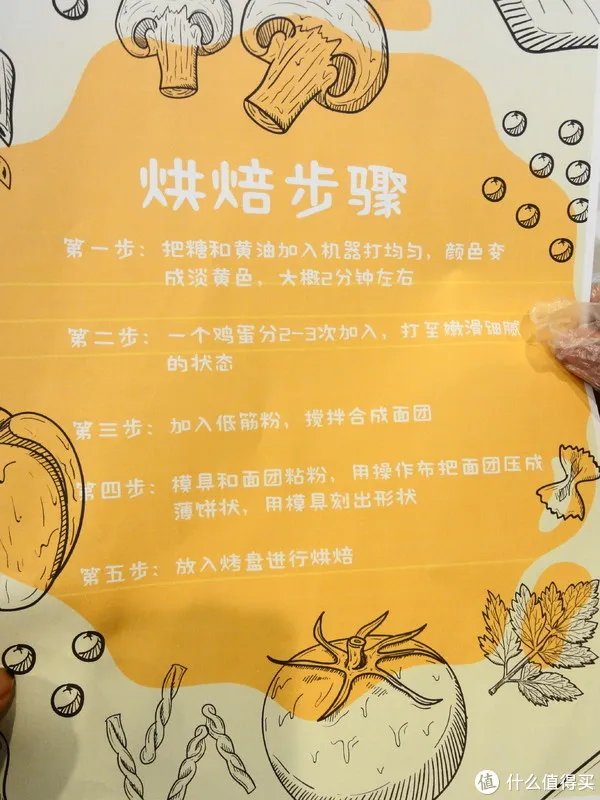 烘焙步骤
第一步：把糖和黄油加入机器打均匀，颜色变
成淡黄色，大概2分钟左右
第二步：一个鸡蛋分2-3次加入，打至嫩滑细腻
的状态
第三步：加入低筋粉，搅拌合成面团
第四步：模具和面团粘粉，用操作布把面团压成
薄饼状，用模具刻出形状
第五步：放入烤盘进行烘焙
值 什么值得买